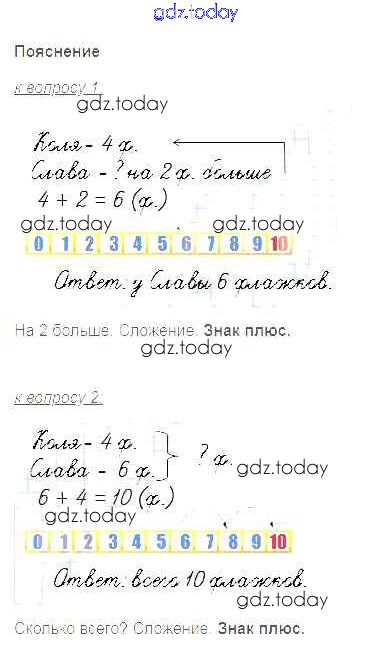 gdz.today
Пояснение
к вопросу 1:
gdz.today
Коля - 4 ф.
Слава - ? на 2 ф. больше
4 + 2 = 6 (ф.)
gdz.today gdz.today
0 1 2 3 4 5 6 7 8 9 10
Ответ: у Славы 6 флажков.
На 2 больше. Сложение. Знак плюс.
gdz.today
к вопросу 2:
Коля - 4 ф.
Слава - 6 ф.
? ф.
gdz.today
6 + 4 = 10 (ф.)
gdz.today
0 1 2 3 4 5 6 7 8 9 10
Ответ: всего 10 флажков.
gdz.today
Сколько всего? Сложение. Знак плюс.